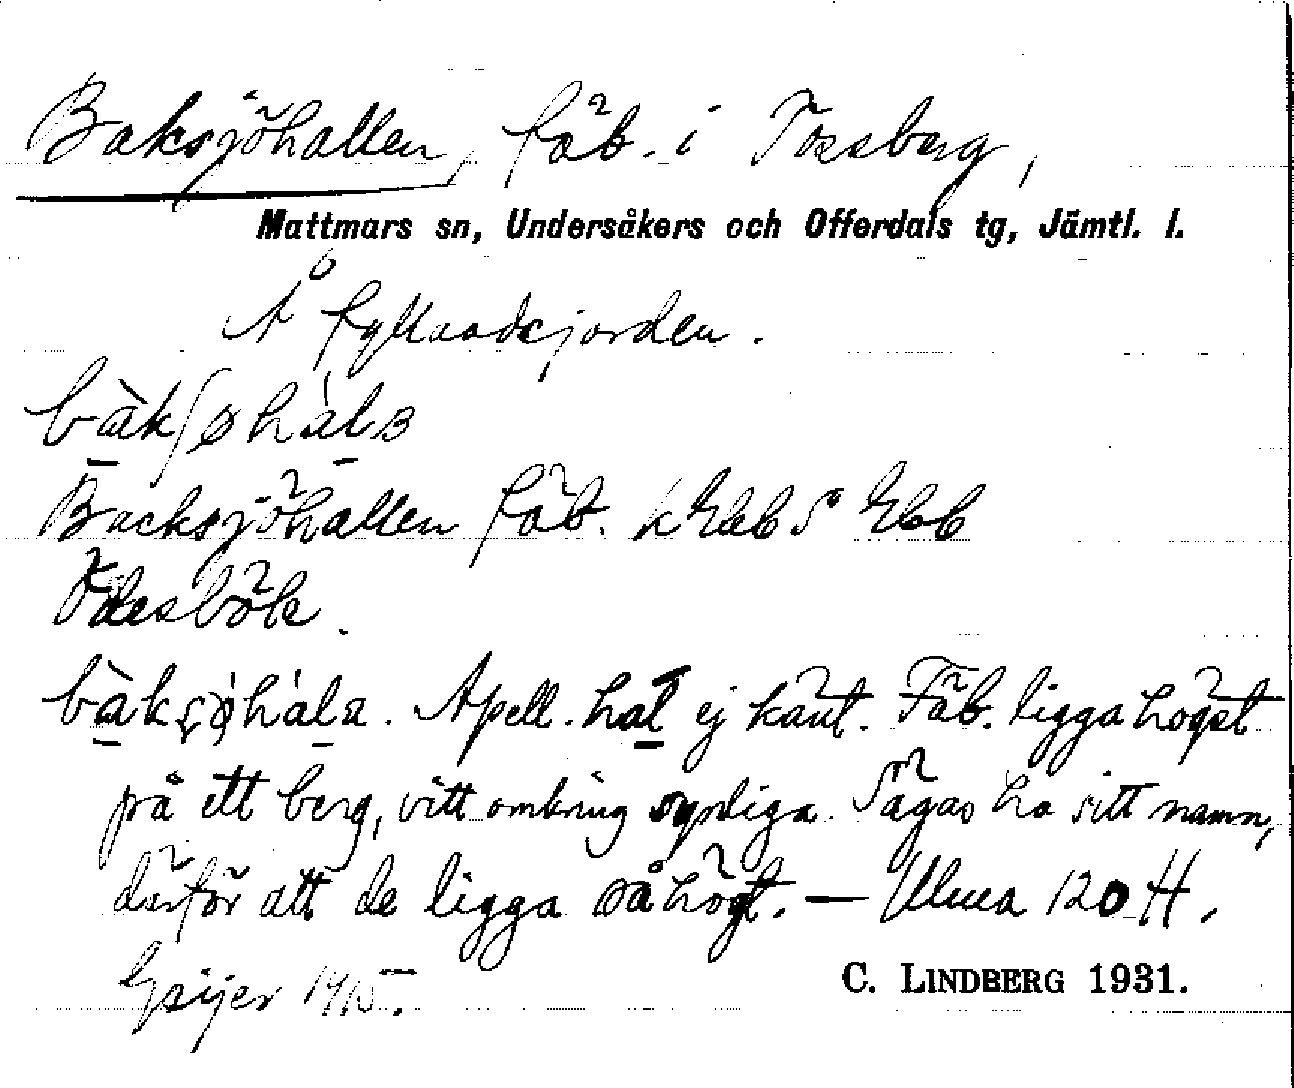 Baksjöhallen, fäb. i Tossberg,
Mattmars sn, Undersåkers och Offerdals tg, Jämtl. l.
Å
bàkʃøhàlɜ
Backsjöhallen fäb.
bàkʃøhàla. Apell. hal ej känt. Fäb. ligga högst
på ett berg, vitt omkring synliga. Sägas ha sitt namn,
därför att de ligga så högt. — Ulma 120 H.
Geijer 1915.
C. LINDBERG 1931.